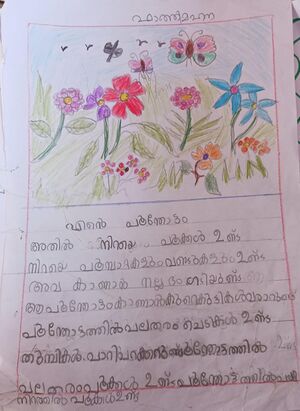 ഫാത്തിമഹന്ന
എന്റെ പൂന്തോട്ടം
അതിൽ നിറയെ പൂക്കൾ ഉണ്ട്
നിറയെ പൂമ്പാറ്റകളും വണ്ടുകളും ഉണ്ട്
അവ കാണാൻ നല്ല ഭംഗിയുണ്ട്
ആ പൂന്തോട്ടം കാണാൻ കുറെ കുട്ടികൾ വരാറുണ്ട്
പൂന്തോട്ടത്തിൽ പലതരം ചെടികൾ ഉണ്ട്
തുമ്പികൾ പാറിപറക്കുന്ന പൂന്തോട്ടത്തിൽ
പലതരം പൂക്കൾ ഉണ്ട് പൂന്തോട്ടത്തിൽ പല
നിറത്തിൽ പൂക്കൾ ഉണ്ട്